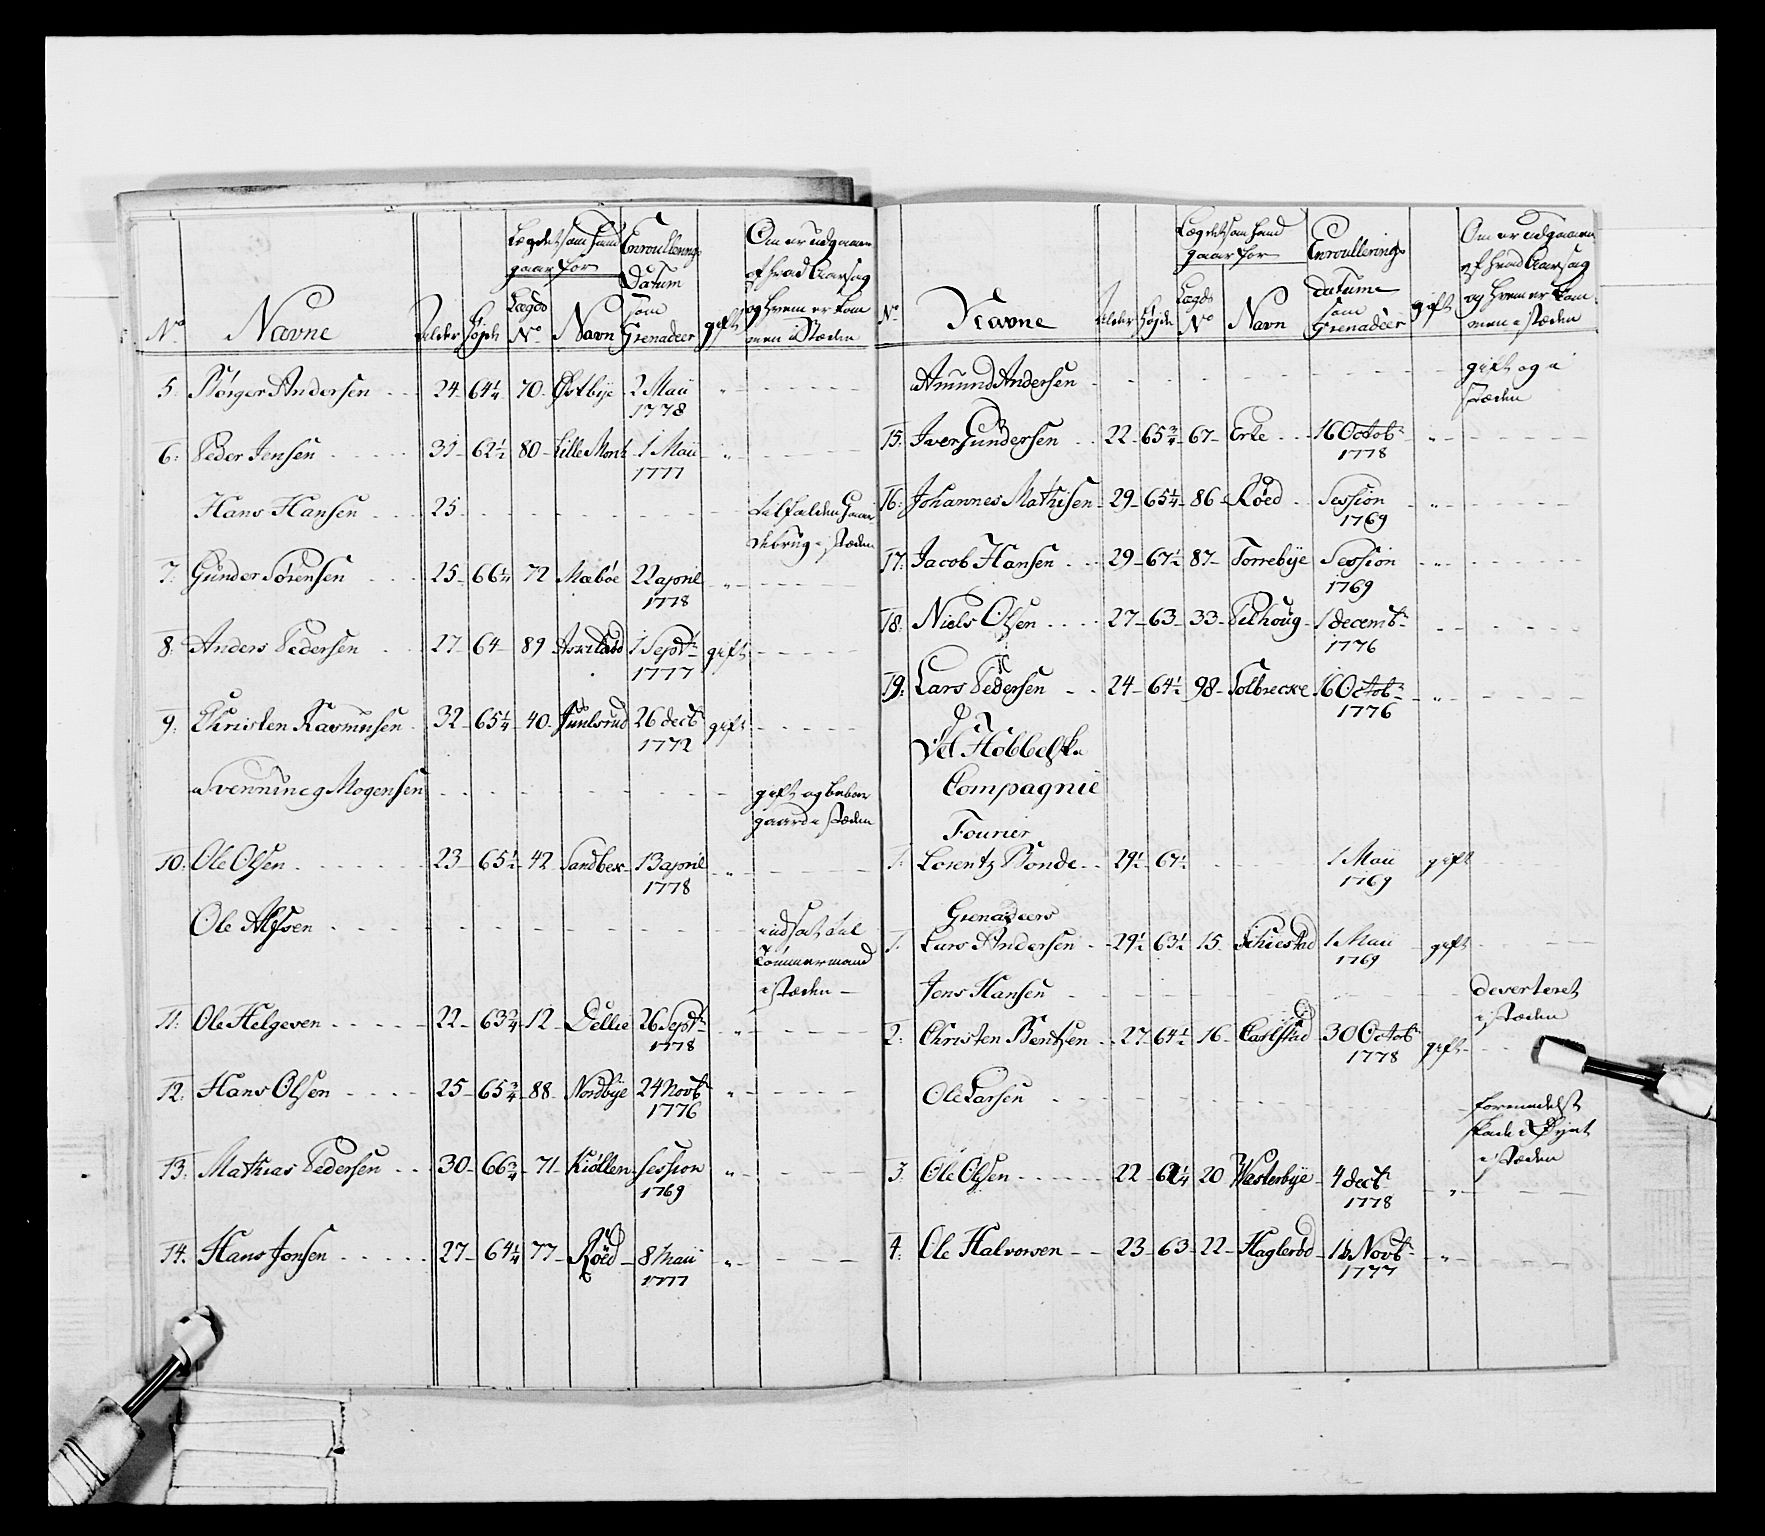 No. Navne Alder Højde Lægdet som hand gaar for Lægds No. Navn Enroullerings Datum som Grenadeer gift Om er udgaaen af hvad Aarsag og hvem er kommen i Stæden
5. Børger Andersen 24 64¼ 70 Østbÿe 2 Maii 1778
6. Peder Jensen 31 62½ 80 Lille Mont 1 Maii 1777
Hans Hansen 25 tilfalden Gaar
debrug i stæden
7. Gunder Sørensen 25 66¼ 72 Mæbøe 22 april 1778
8. Anders Pedersen 27 64 89 1 Septr 1777 gift
9. Christen Rasmusen 32 65¼ 40 Juulsrud 26 decb 1772 gift
Svennineg Mogensen gift og beboer
gaard i stæden
10. Ole Olsen 23 65½ 42 Sandbek 13 april 1778
Ole Alfsen udsat til
Tømmermand
i stæden
11. Ole Helgesen 22 63¾ 12 Dellie 26 Septr 1778
12. Hans Olsen 25 65¾ 88 Nordbÿe 24 Novb 1776
13. Mathias Pedersen 30 66¾ 71 Kiøllen session 1769
14. Hans Jonsen 27 64¼ 77 Røed 8 Maii 1777
No. Navne Alder Højde Lægdet som hand gaar for Lægds No. Navn Enroullerings datume som Grenadeer gift Om er udgaaen af hvad Aarsag og hvem er kommen i stæden
Amund Andersen gift og i
stæden
15. Iver Gundersen 22 65¾ 67 Erte 16 Octobr 1778
16. Johannes Mathisen 29 65¼ 86 Røed Session 1769
17. Jacob Hansen 29 67½ 87 Torrebÿe Session 1769
18. Niels Olsen 27 63 33 Telhoug 1 decembr 1776
19. Lars Pedersen 24 64½ 98 Solbrecke 16 Octobr 1776
Ved Hobbelske
Compagnie
Fourier
1. Lorentz Bonde 29½ 67½ 1 Maii 1769 gift
Grenadeers
1. Lars Andersen 29½ 63½ 15 Schiestad 1 Maii 1769 gift
Jens Hansen deserteret
i stæden
2. Christen Bentsen 27 64½ 16 Carlstad 30 Octob 1778 gift
Ole Larsen formedelst
skade i Øÿet
i stæden
3. Ole Olsen 22 20 Wæsterbÿe 4 decb 1778
4. Ole Halvorsen 23 63 22 Haglerød Novb 1777